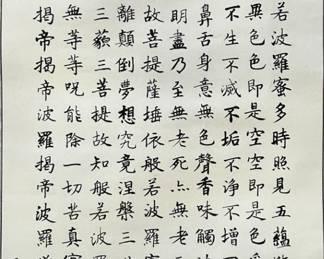 若波羅蜜多時照見五蘊
異色色即是空空即是色
不生不滅不垢不淨不增不
鼻舌身意無色聲香味觸
明盡乃至無老死亦無老
故菩提薩埵依般若波羅
離顛倒夢想究竟涅槃三
三藐三菩提故知般若波
無等等呪能除一切苦真
揭帝揭帝波羅揭帝波羅